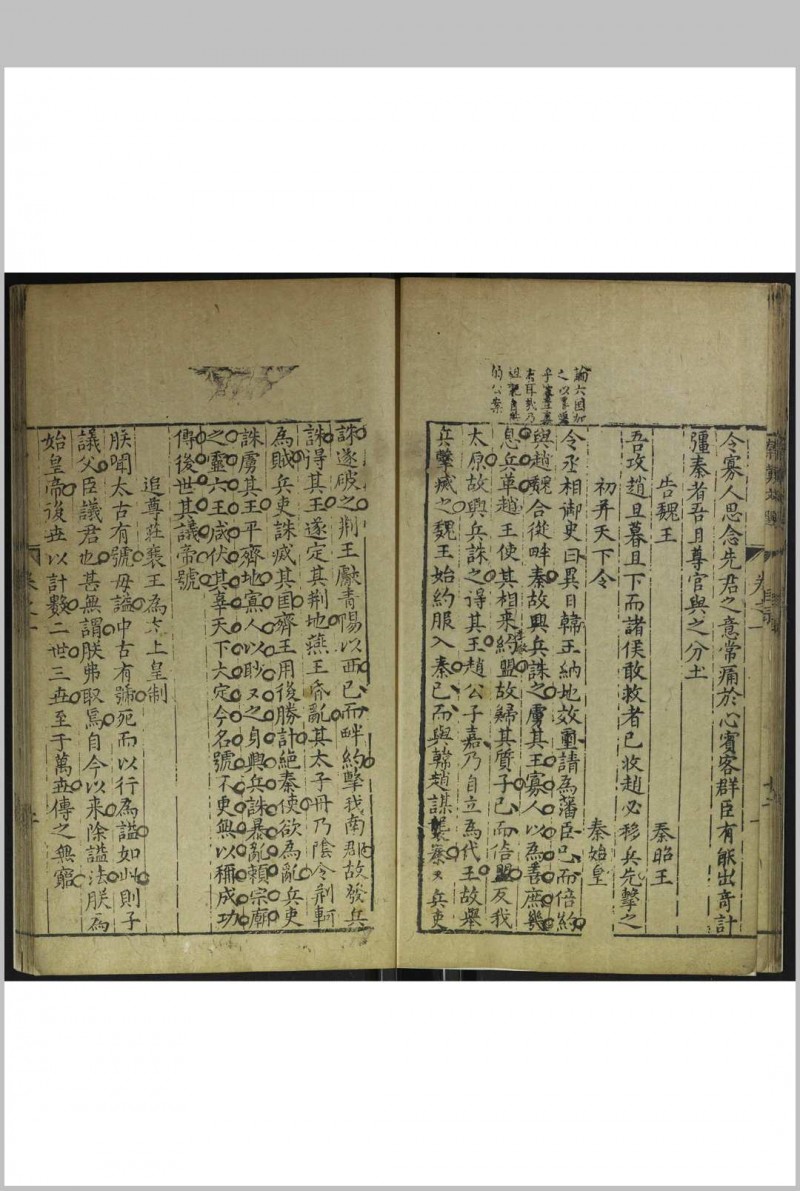 令寡人思念先君之意常痛於心賓客群臣有能出奇計
彊秦者吾且尊官與之分土
告魏王
秦昭王
吾攻趙旦暮且下而諸侯敢救者已收趙必移兵先擊之
初并天下令
秦始皇
論六國加
之以
令丞相御史曰異日韓王納地效璽請為藩臣已而倍約
與趙魏合從畔秦故興兵誅之虜其王寡人以為善庶幾
息兵革趙王使其相來約盟故歸其質子已而倍盟反我
太原故興兵誅之得其王趙公子嘉乃自立為代王故舉
兵擊威之魏王始約服入秦已而與韓趙謀襲秦秦兵吏
誅遂破之荆王獻青陽以西已而畔約擊我南郡故發兵
誅得其王遂定其荆地燕王昏亂其太子丹乃陰令荆軻
為賊兵吏誅威其国齊王用後勝計絕秦使欲為亂兵吏
誅虜其王平齊地寡人以眇〻之身興兵誅暴亂賴宗廟
之靈六王咸伏其辜天下大定今名號不更無以稱成功
傳後世其議帝號
追尊莊襄王為太上皇制
朕聞太古有號毋謚中古有號死而以行為謚如此則子
議父臣議君也甚無謂朕弗取焉自今以來除謚法朕為
始皇帝後世以計數二世三世至于萬世傳之無窮